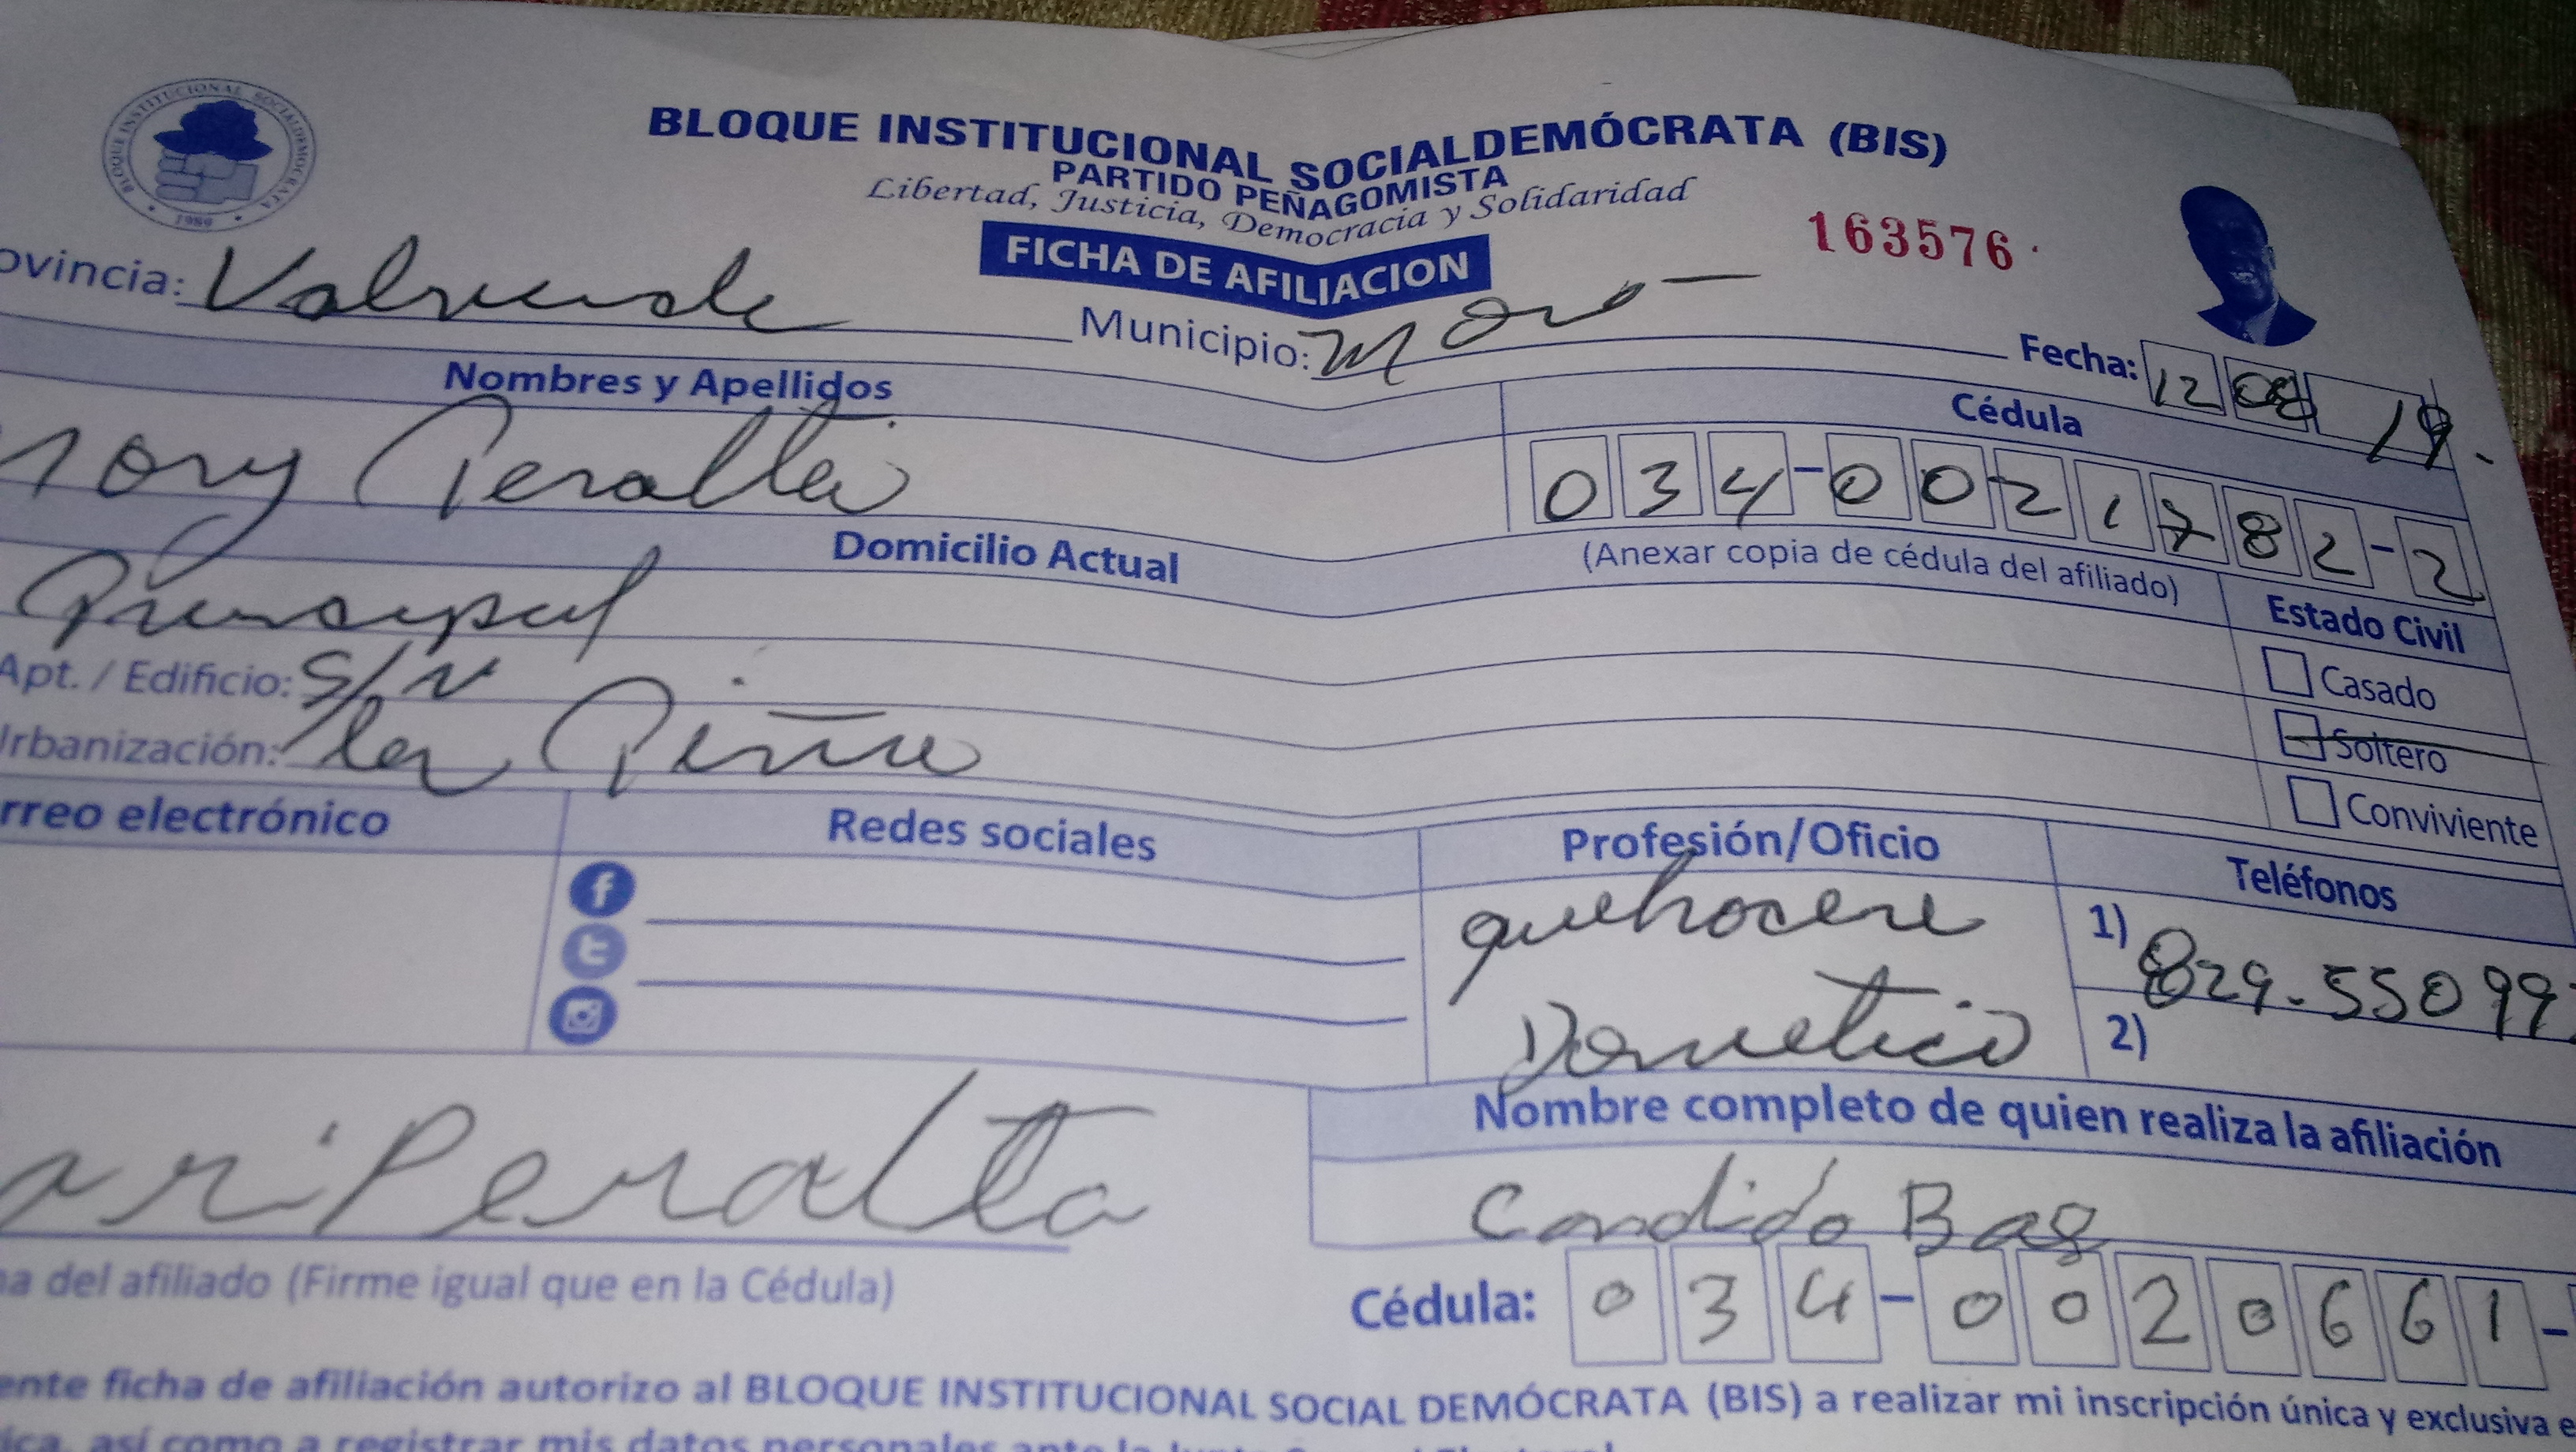 BLOQUE INSTITUCIONAL SOCIALDEMÓCRATA
1989
BLOQUE INSTITUCIONAL SOCIALDEMÓCRATA (BIS)
PARTIDO PEÑAGOMISTA
Libertad, Justicia, Democracia y Solidaridad
FICHA DE AFILIACION
163576
ovincia: Valverde Municipio: Mao
Fecha: 12 08 19
Nombres y Apellidos
Cédula
Mary Peralta
034-0021782-2
(Anexar copia de cédula del afiliado)
Domicilio Actual
Estado Civil
Principal
Apt. / Edificio: S/N
Casado
Urbanización:
Soltero
Conviviente
rreo electrónico Redes sociales Profesión/Oficio Teléfonos
quehacere
Dometico
1) 829-55099
2)
Nombre completo de quien realiza la afiliación
ari Peralta
Candido
Cédula: 034-0020661-
a del afiliado (Firme igual que en la Cédula)
ente ficha de afiliación autorizo al BLOQUE INSTITUCIONAL SOCIAL DEMÓCRATA (BIS) a realizar mi inscripción única y exclusiva e
ica, así como a registrar mis datos personales ante la Junta Central Electoral